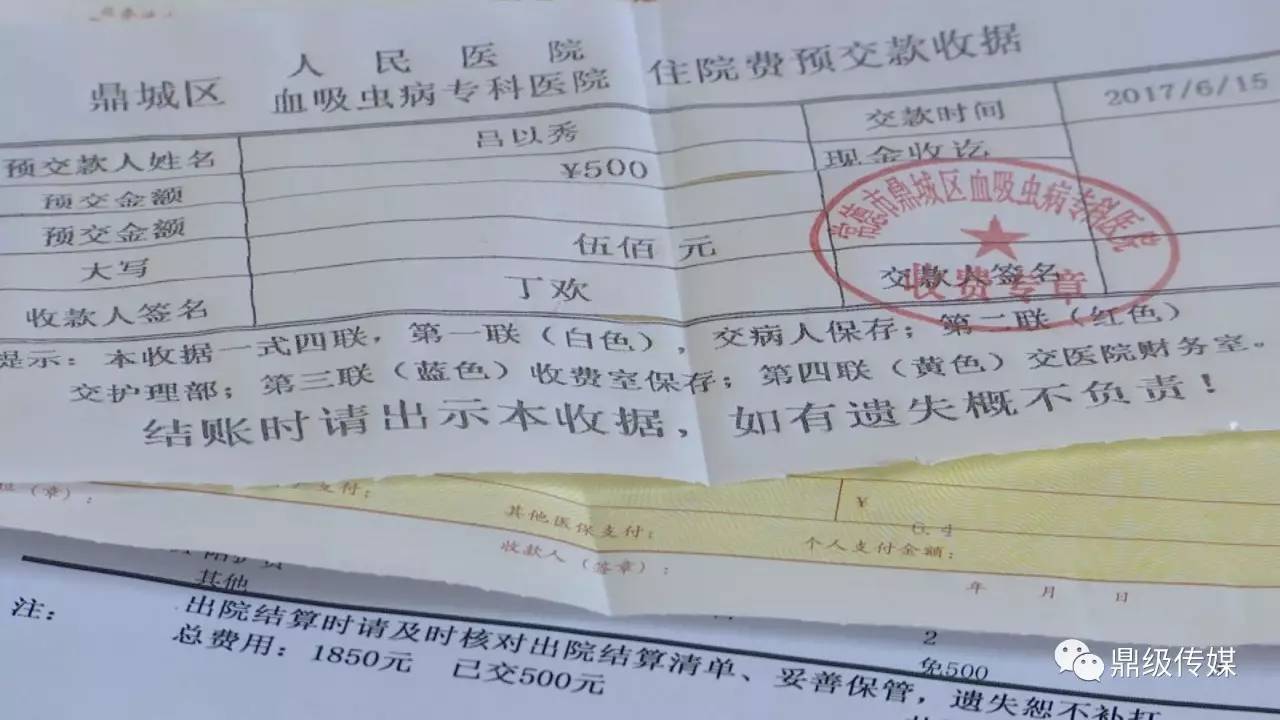 人民医院
鼎城区 血吸虫病专科医院 住院费预交款收据
预交款人姓名 吕以秀 交款时间 2017/6/15
预交金额 ¥500 现金收讫
预交金额
大写 伍佰 元 交款人签名
收款人签名 丁欢
常德市鼎城区血吸虫病专科医院
收费专章
提示：本收据一式四联，第一联（白色），交病人保存；第二联（红色）
交护理部；第三联（蓝色）收费室保存；第四联（黄色）交医院财务室。
结账时请出示本收据，如有遗失概不负责！
（章）： 支付： 其他医保支付： ¥
个人支付金额：
收款人（签章）： 年 月 日
其他
2
注： 出院结算时请及时核对出院结算清单、妥善保管，遗失恕不补打
免500
总费用：1850元 已交500元
鼎级传媒